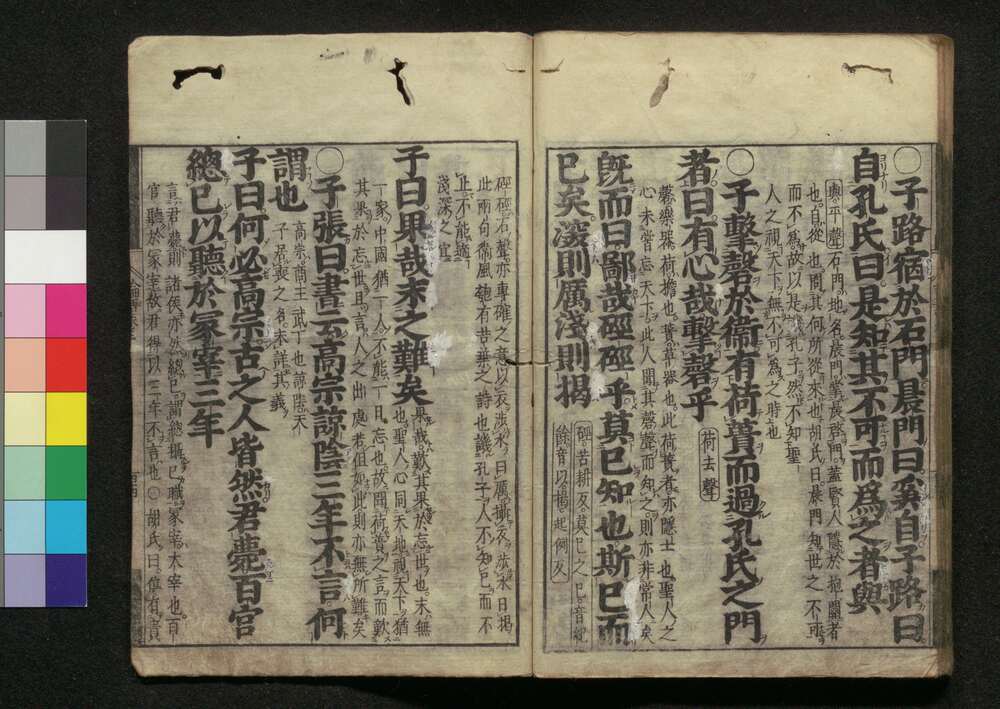 ○子路宿於石門晨門曰奚自子路曰
自孔氏曰是知其不可而爲之者與
與平聲○石門地名晨門掌晨啓門蓋賢人隱於抱關者
也自從也問其何所從來也胡氏曰晨門知世之不可
而不爲故以是譏孔子然不知聖
人之視天下無不可爲之時也
○子擊磬於衞有荷蕢而過孔氏之門
者曰有心哉擊磬乎
荷去聲
磬樂器荷擔也蕢草器也此荷蕢者亦隱士也聖人之
心未嘗忘天下此人聞其磬聲而知之則亦非常人矣
旣而曰鄙哉硜硜乎莫己知也斯已而
已矣深則厲淺則揭
硜苦耕反莫己之己音紀
餘音以揭起例反
硜硜石聲亦專確之意以衣涉水曰厲攝衣涉水曰揭
此兩句衞風匏有苦葉之詩也譏孔子人不知己而不
止不能適
淺深之宜
子曰果哉末之難矣
果哉歎其果於忘世也末無
也聖人心同天地視天下猶
一家中國猶一人不能一日忘也故聞荷蕢之言而歎
其果於忘世且言人之出處若但如此則亦無所難矣
○子張曰書云高宗諒陰三年不言何
謂也
高宗商王武丁也諒陰天
子居喪之名未詳其義
子曰何必高宗古之人皆然君薨百官
總己以聽於冢宰三年
言君薨則諸侯亦然總己謂總攝己職冢宰太宰也百
官聽於冢宰故君得以三年不言也○胡氏曰位有貴